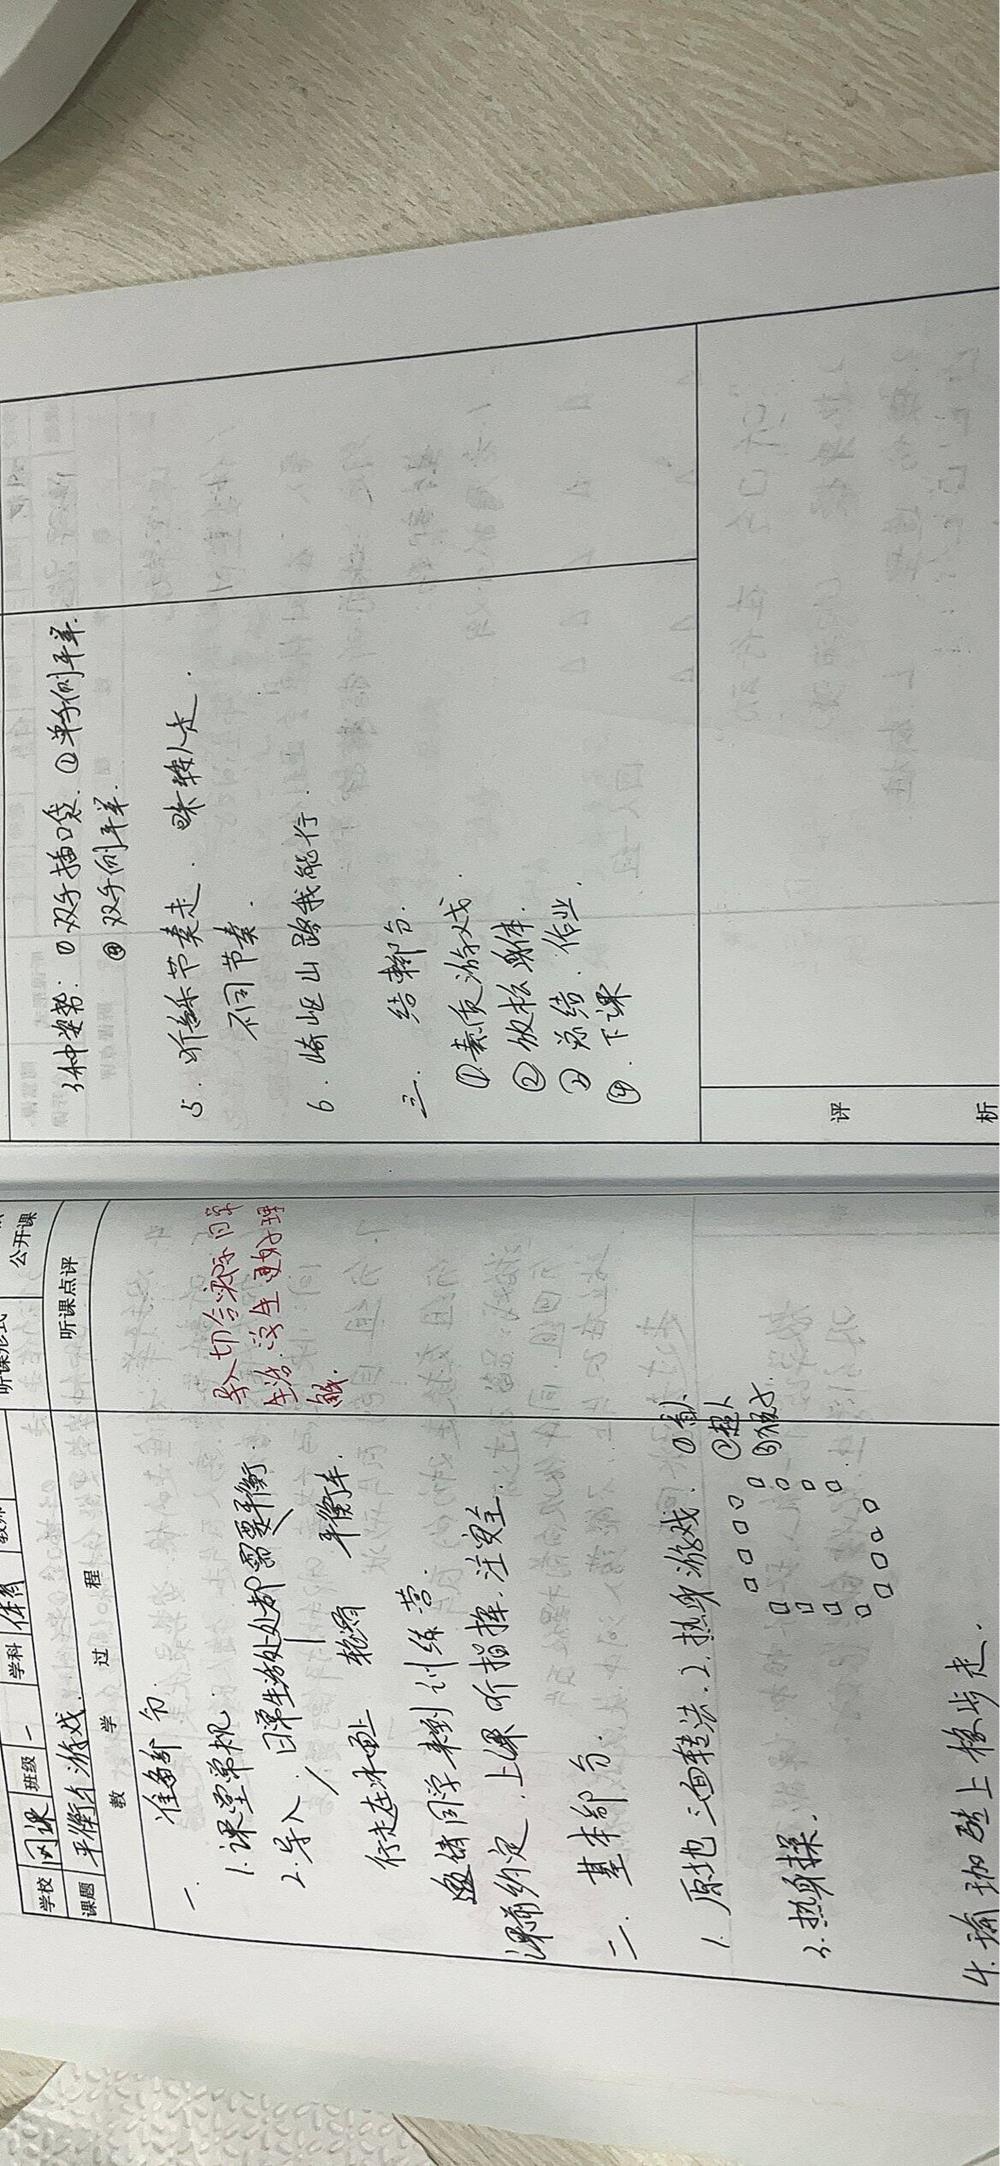 听课形式 公开课
学校 网课 班级 一 学科 体育 教师
课题 平衡与游戏
教 学 过 程 听课点评
一. 准备部分
1. 课堂常规.
2. 导入 日常生活处处都需要平衡.
行走在冰面上 轮滑 平衡车.
邀请同学来到训练营.
课前约定. 上课听指挥. 注安全.
导入切合实际日常
生活. 学生更好理
解.
二. 基本部分.
1. 原地三面转法. 2. 热身游戏. ①盲人
②超人
3. 热身操.
4. 瑜珈砖上移步走.
3种姿势: ①双手插口袋. ②单手侧平举.
③双手侧平举.
5. 听音乐节奏走.
不同节奏.
6. 崎岖山路我能行.
三. 结束部分.
①素质游戏.
②放松身体.
③总结. 作业
④. 下课
评
析